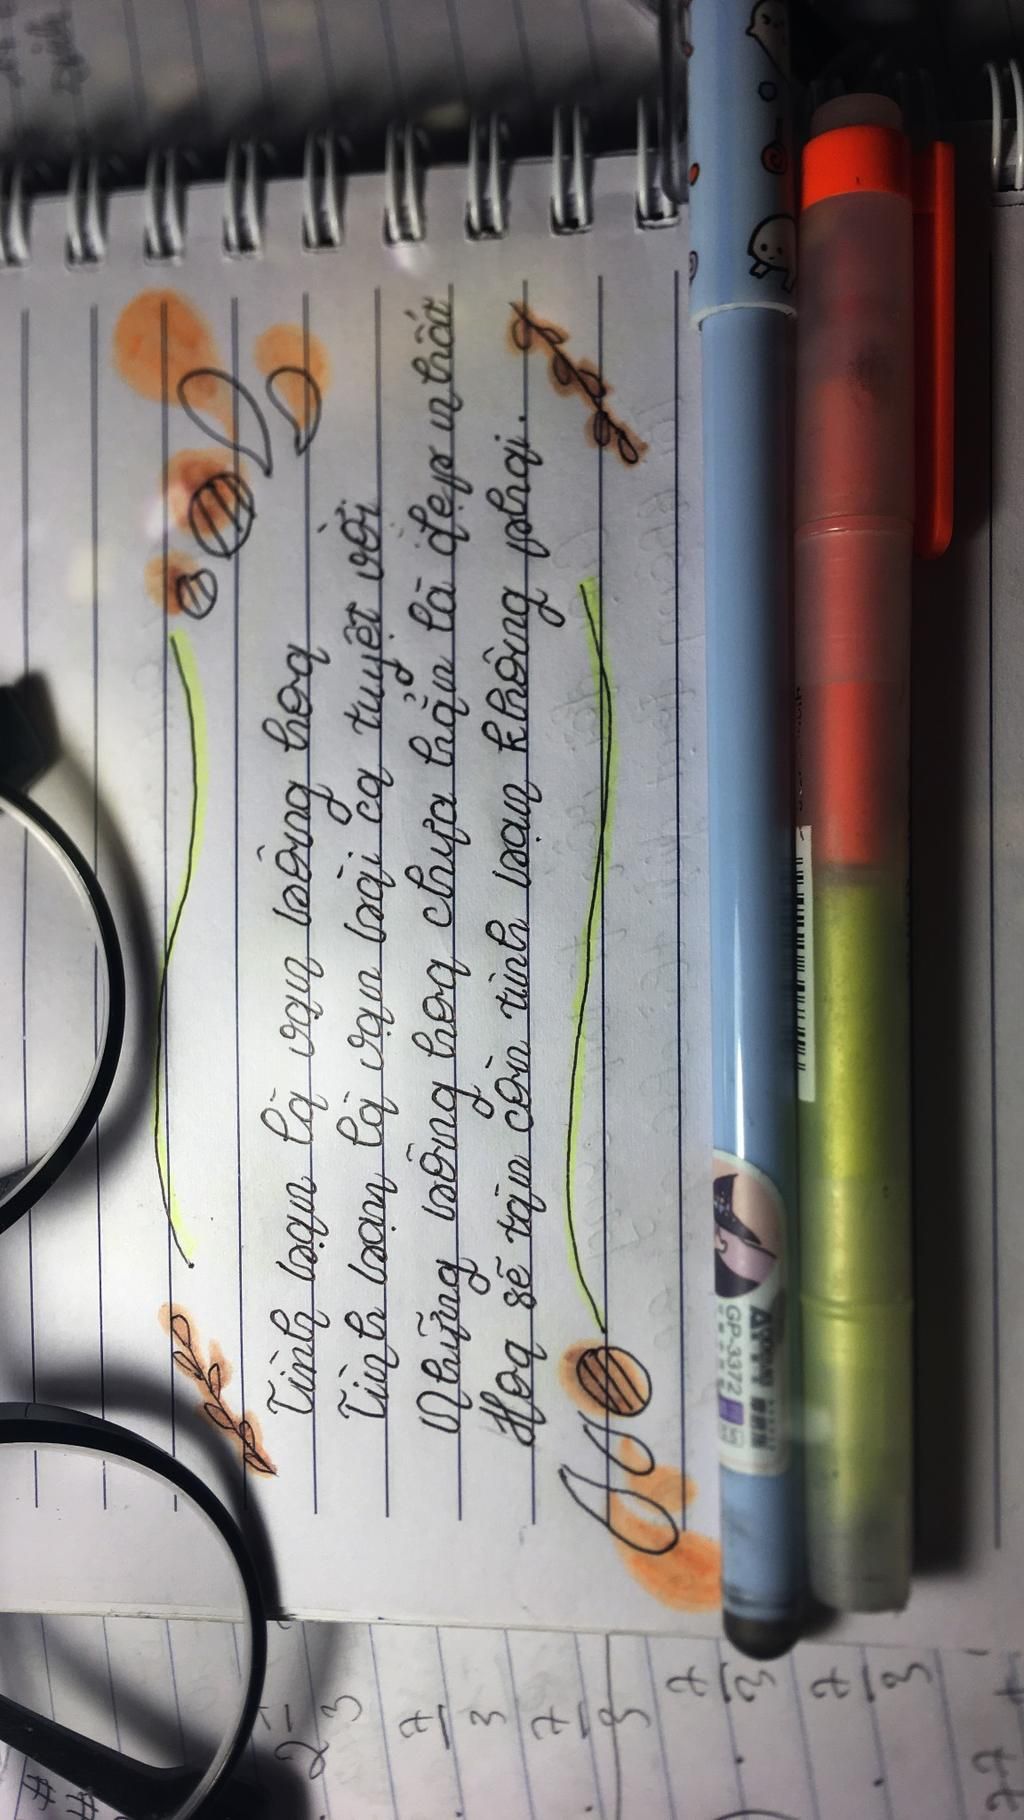 Tình bạn là vạn bông hoa
Tình bạn là vạn bài ca tuyệt vời
Những bông hoa chưa hẳn là đẹp nhất
Hoa sẽ tàn còn tình bạn không phai.
GP-3372
2
3
7
3
7
3
7
3
7
3